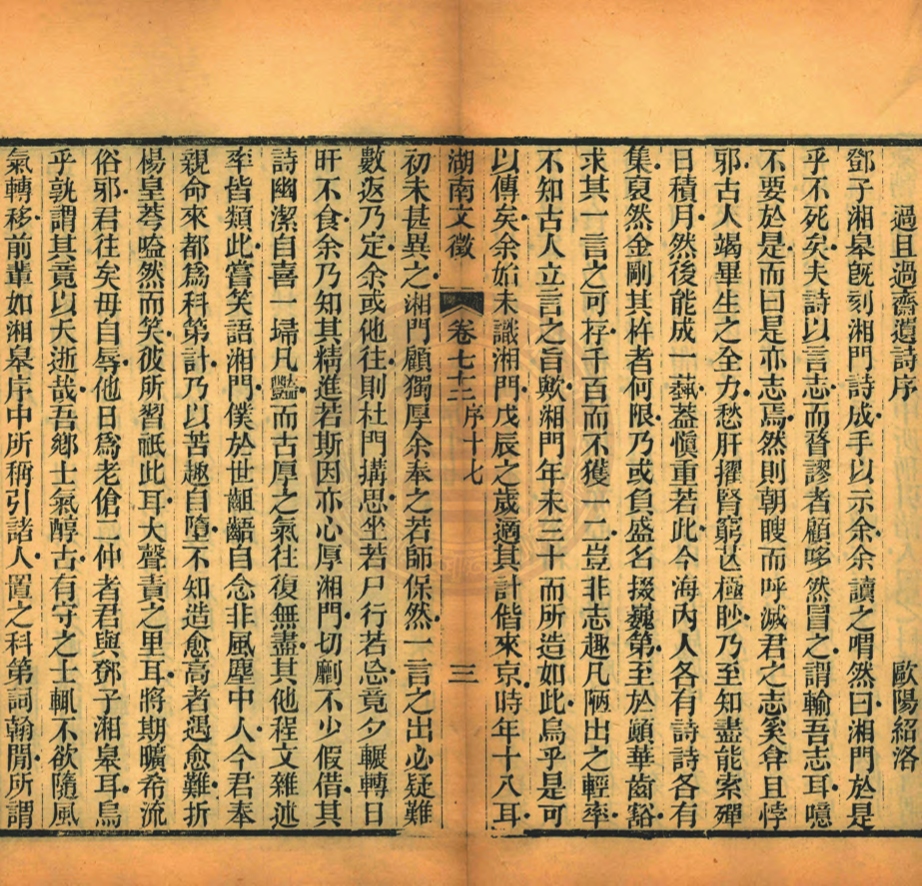 過且過齋遺詩序 歐陽紹洛
鄧子湘皋既刻湘門詩成手以示余余讀之喟然曰湘門於是
乎不死矣夫詩以言志而瞀謬者顧哆然冒之謂輸吾志耳噫
不要於是而曰是亦志焉然則朝䁬而呼滅君之志奚弇且悖
邪古人竭畢生之全力愁肝擢腎窮芒極眇乃至知盡能索殫
日積月然後能成一蓺葢愼重若此今海內人各有詩詩各有
集裒然金剛其杵者何限乃或負盛名掇巍第至於顚華齒豁
求其一言之可存千百而不獲一二豈非志趣凡陋出之輕率
不知古人立言之旨歟湘門年未三十而所造如此烏乎是可
以傳矣余始未識湘門戊辰之歲適其計偕來京時年十八耳
湖南文徵 卷七十三 序十七 三
初未甚異之湘門顧獨厚余奉之若師保然一言之出必疑難
數返乃定余或他往則杜門搆思坐若尸行若忘竟夕輾轉日
旰不食余乃知其精進若斯因亦心厚湘門切劘不少假借其
詩幽潔自喜一埽凡豔而古厚之氣往復無盡其他程文雜述
率皆類此嘗笑語湘門僕於世齟齬自念非風塵中人今君奉
親命來都爲科第計乃以苦趣自墮不知造愈高者遇愈難折
楊皇荂嗑然而笑彼所習祇此耳大聲責之里耳將期曠希流
俗邪君往矣毋自辱他日爲老傖二仲者君與鄧子湘皋耳烏
乎孰謂其竟以夭逝哉吾鄉士氣醇古有守之士輒不欲隨風
氣轉移前輩如湘皋序中所稱引諸人置之科第詞翰閒所謂